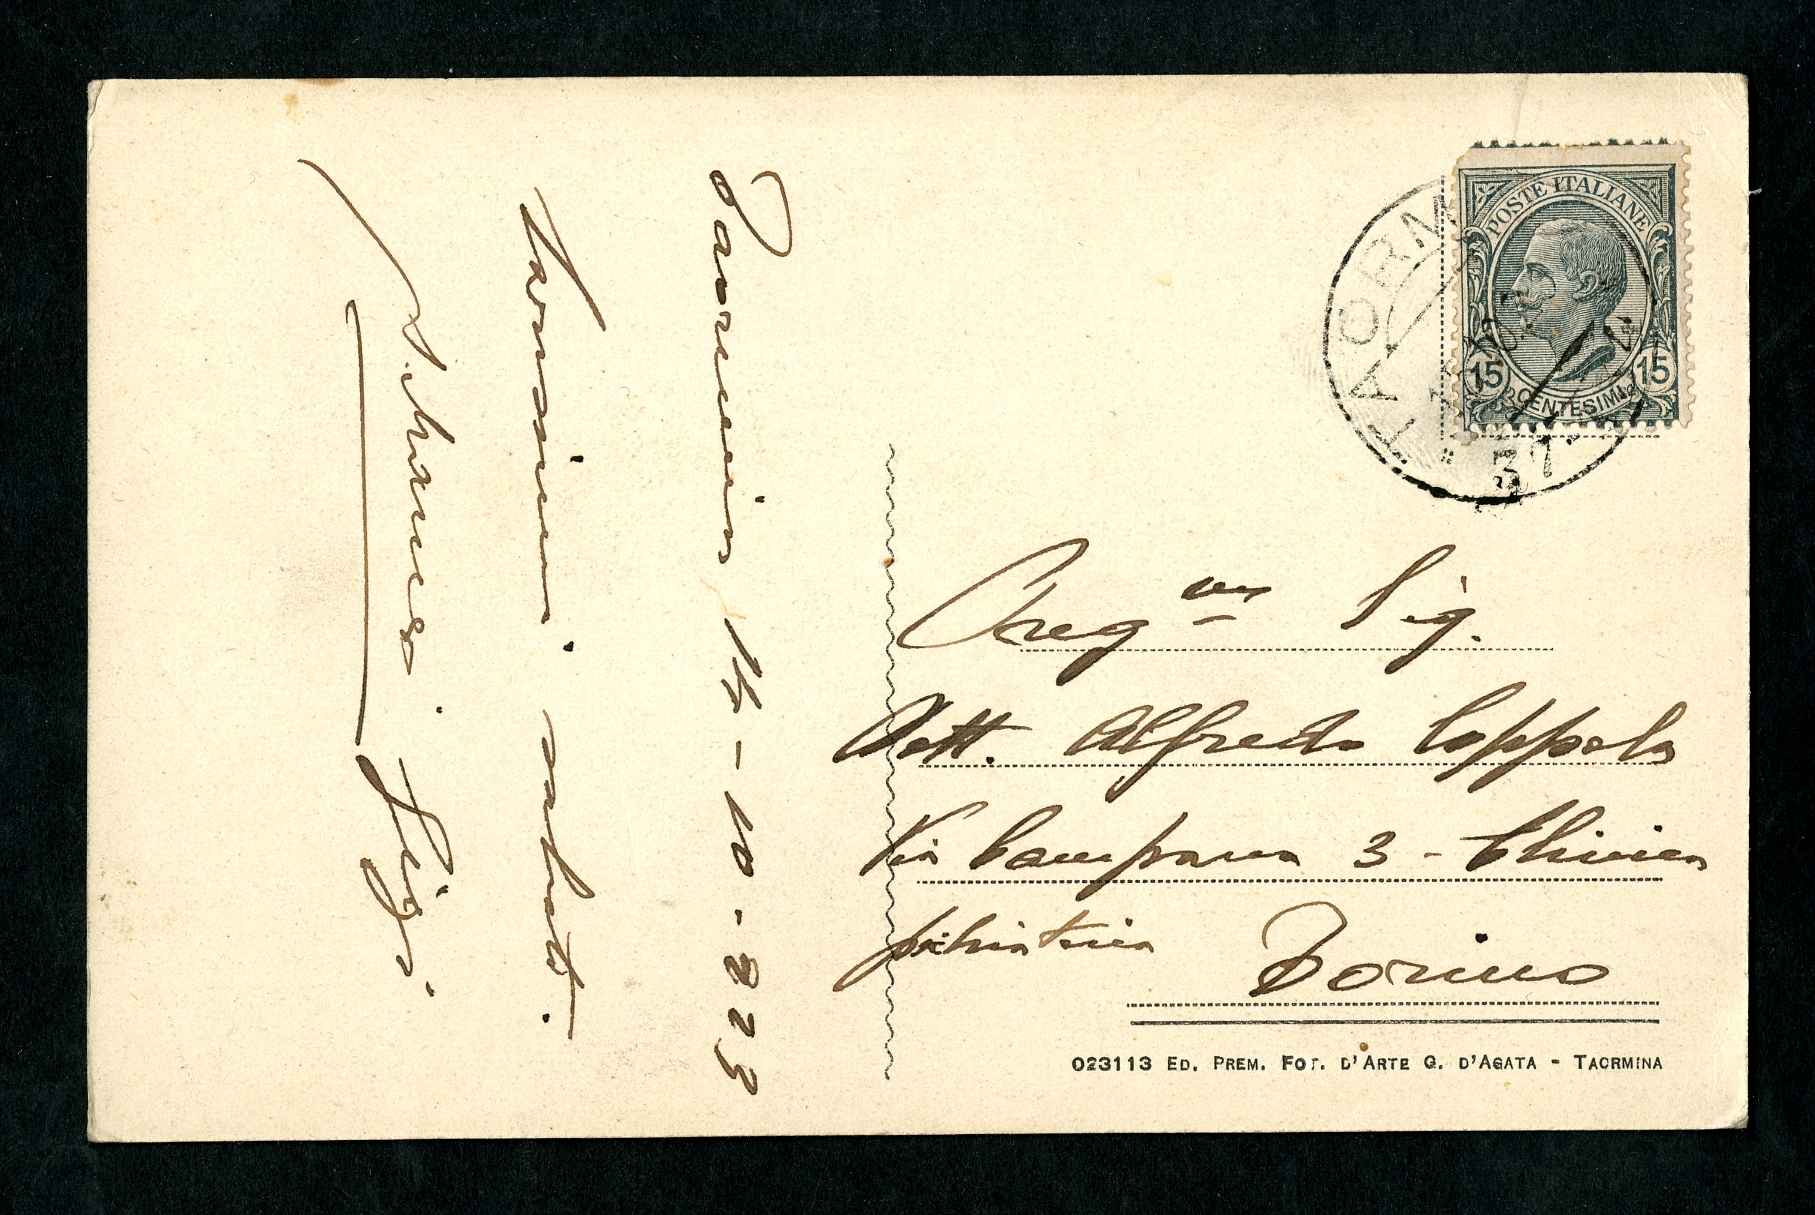 Taormina 14-10-923
Carissimi saluti.
Luigi
Preg.mo Sig.
Dott. Alfredo Coppola
Via Campana 3 - Clinica
psichiatrica Torino
023113 ED. PREM. FOT. D'ARTE G. D'AGATA - TAORMINA
POSTE ITALIANE
15 CENTESIMI 15
TAORM
37